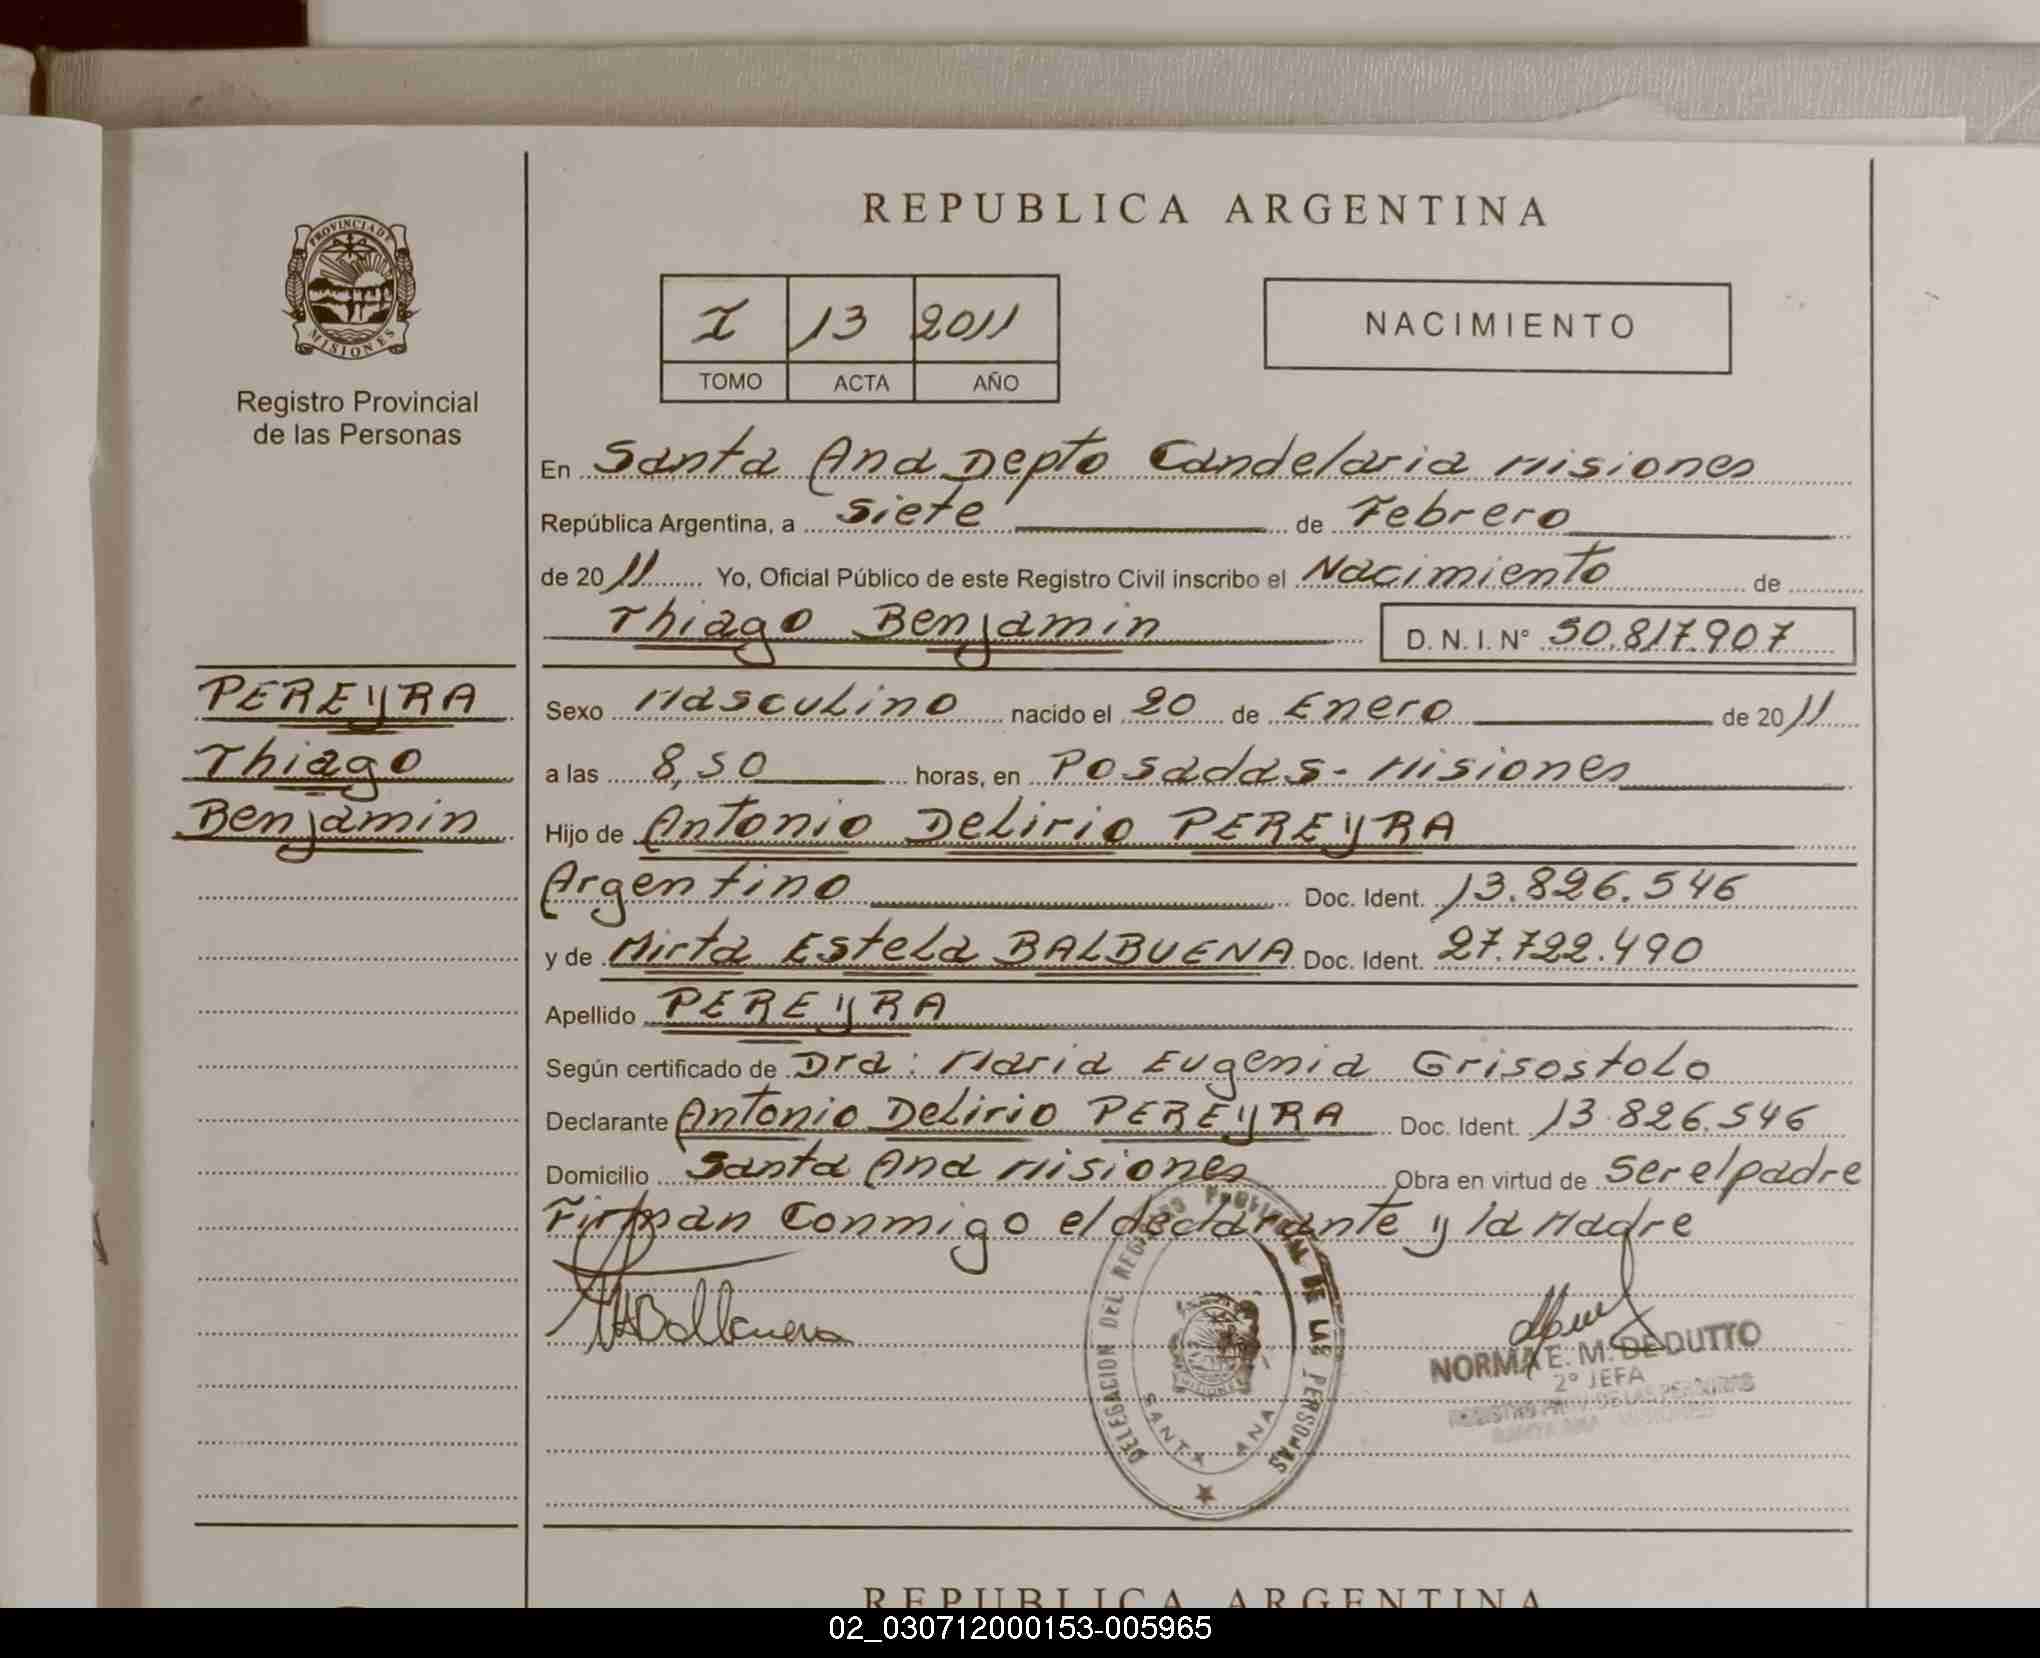 PROVINCIA DE
MISIONES
Registro Provincial
de las Personas
PEREYRA
Thiago
Benjamin
REPUBLICA ARGENTINA
I 13 2011
TOMO ACTA AÑO
NACIMIENTO
En Santa Ana Depto Candelaria Misiones
República Argentina, a siete de Febrero
de 2011 Yo, Oficial Público de este Registro Civil inscribo el Nacimiento de
Thiago Benjamin D. N. I. N° 50.817.907
Sexo Masculino nacido el 20 de Enero de 2011
a las 8,50 horas, en Posadas - Misiones
Hijo de Antonio Delirio PEREYRA
Argentino Doc. Ident. 13.826.546
y de Mirta Estela BALBUENA Doc. Ident. 27.722.490
Apellido PEREYRA
Según certificado de Dra: Maria Eugenia Grisostolo
Declarante Antonio Delirio PEREYRA Doc. Ident. 13.826.546
Domicilio Santa Ana Misiones Obra en virtud de ser el padre
Firman Conmigo el declarante y la Madre
DELEGACION DEL REGISTRO PROVINCIAL DE LAS PERSONAS
SANTA ANA
NORMA E. M. DE DUTTO
2° JEFA
REPUBLICA ARGENTINA
02_030712000153-005965